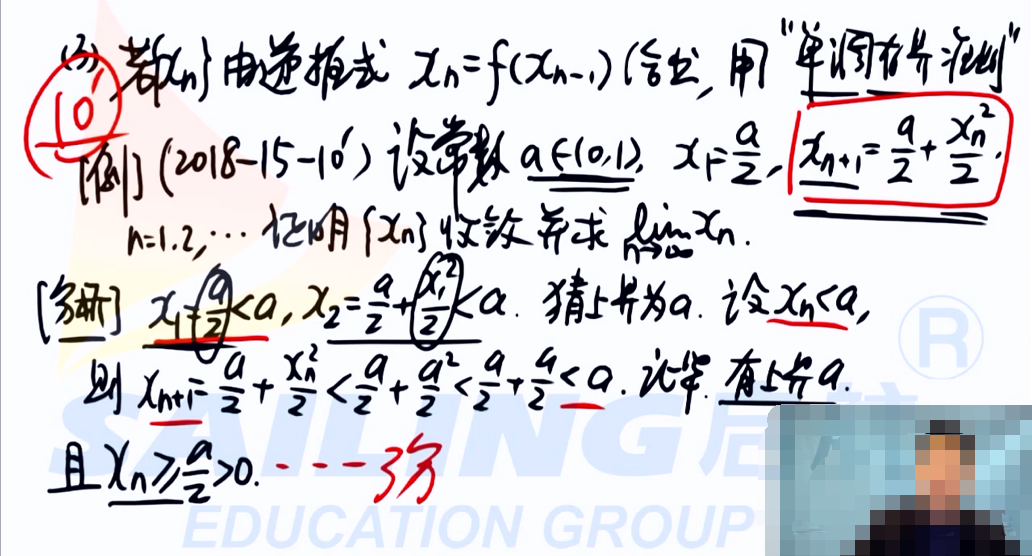 (2) 若{xₙ}由递推式 xₙ=f(xₙ₋₁)给出, 用"单调有界准则"
10'
[例] (2018-15-10') 设常数 a∈(0,1), x₁=a/2, xₙ₊₁=a/2+xₙ²/2.
n=1.2,… 证明{xₙ}收敛并求 lim n→∞ xₙ.
[分析] x₁=a/2<a, x₂=a/2+x₁²/2<a. 猜上界为a. 设xₙ<a,
则 xₙ₊₁=a/2+xₙ²/2<a/2+a²/2<a/2+a/2<a. 证毕. 有上界a.
且 xₙ≥a/2>0. ----3分
SAILING启航
EDUCATION GROUP
®